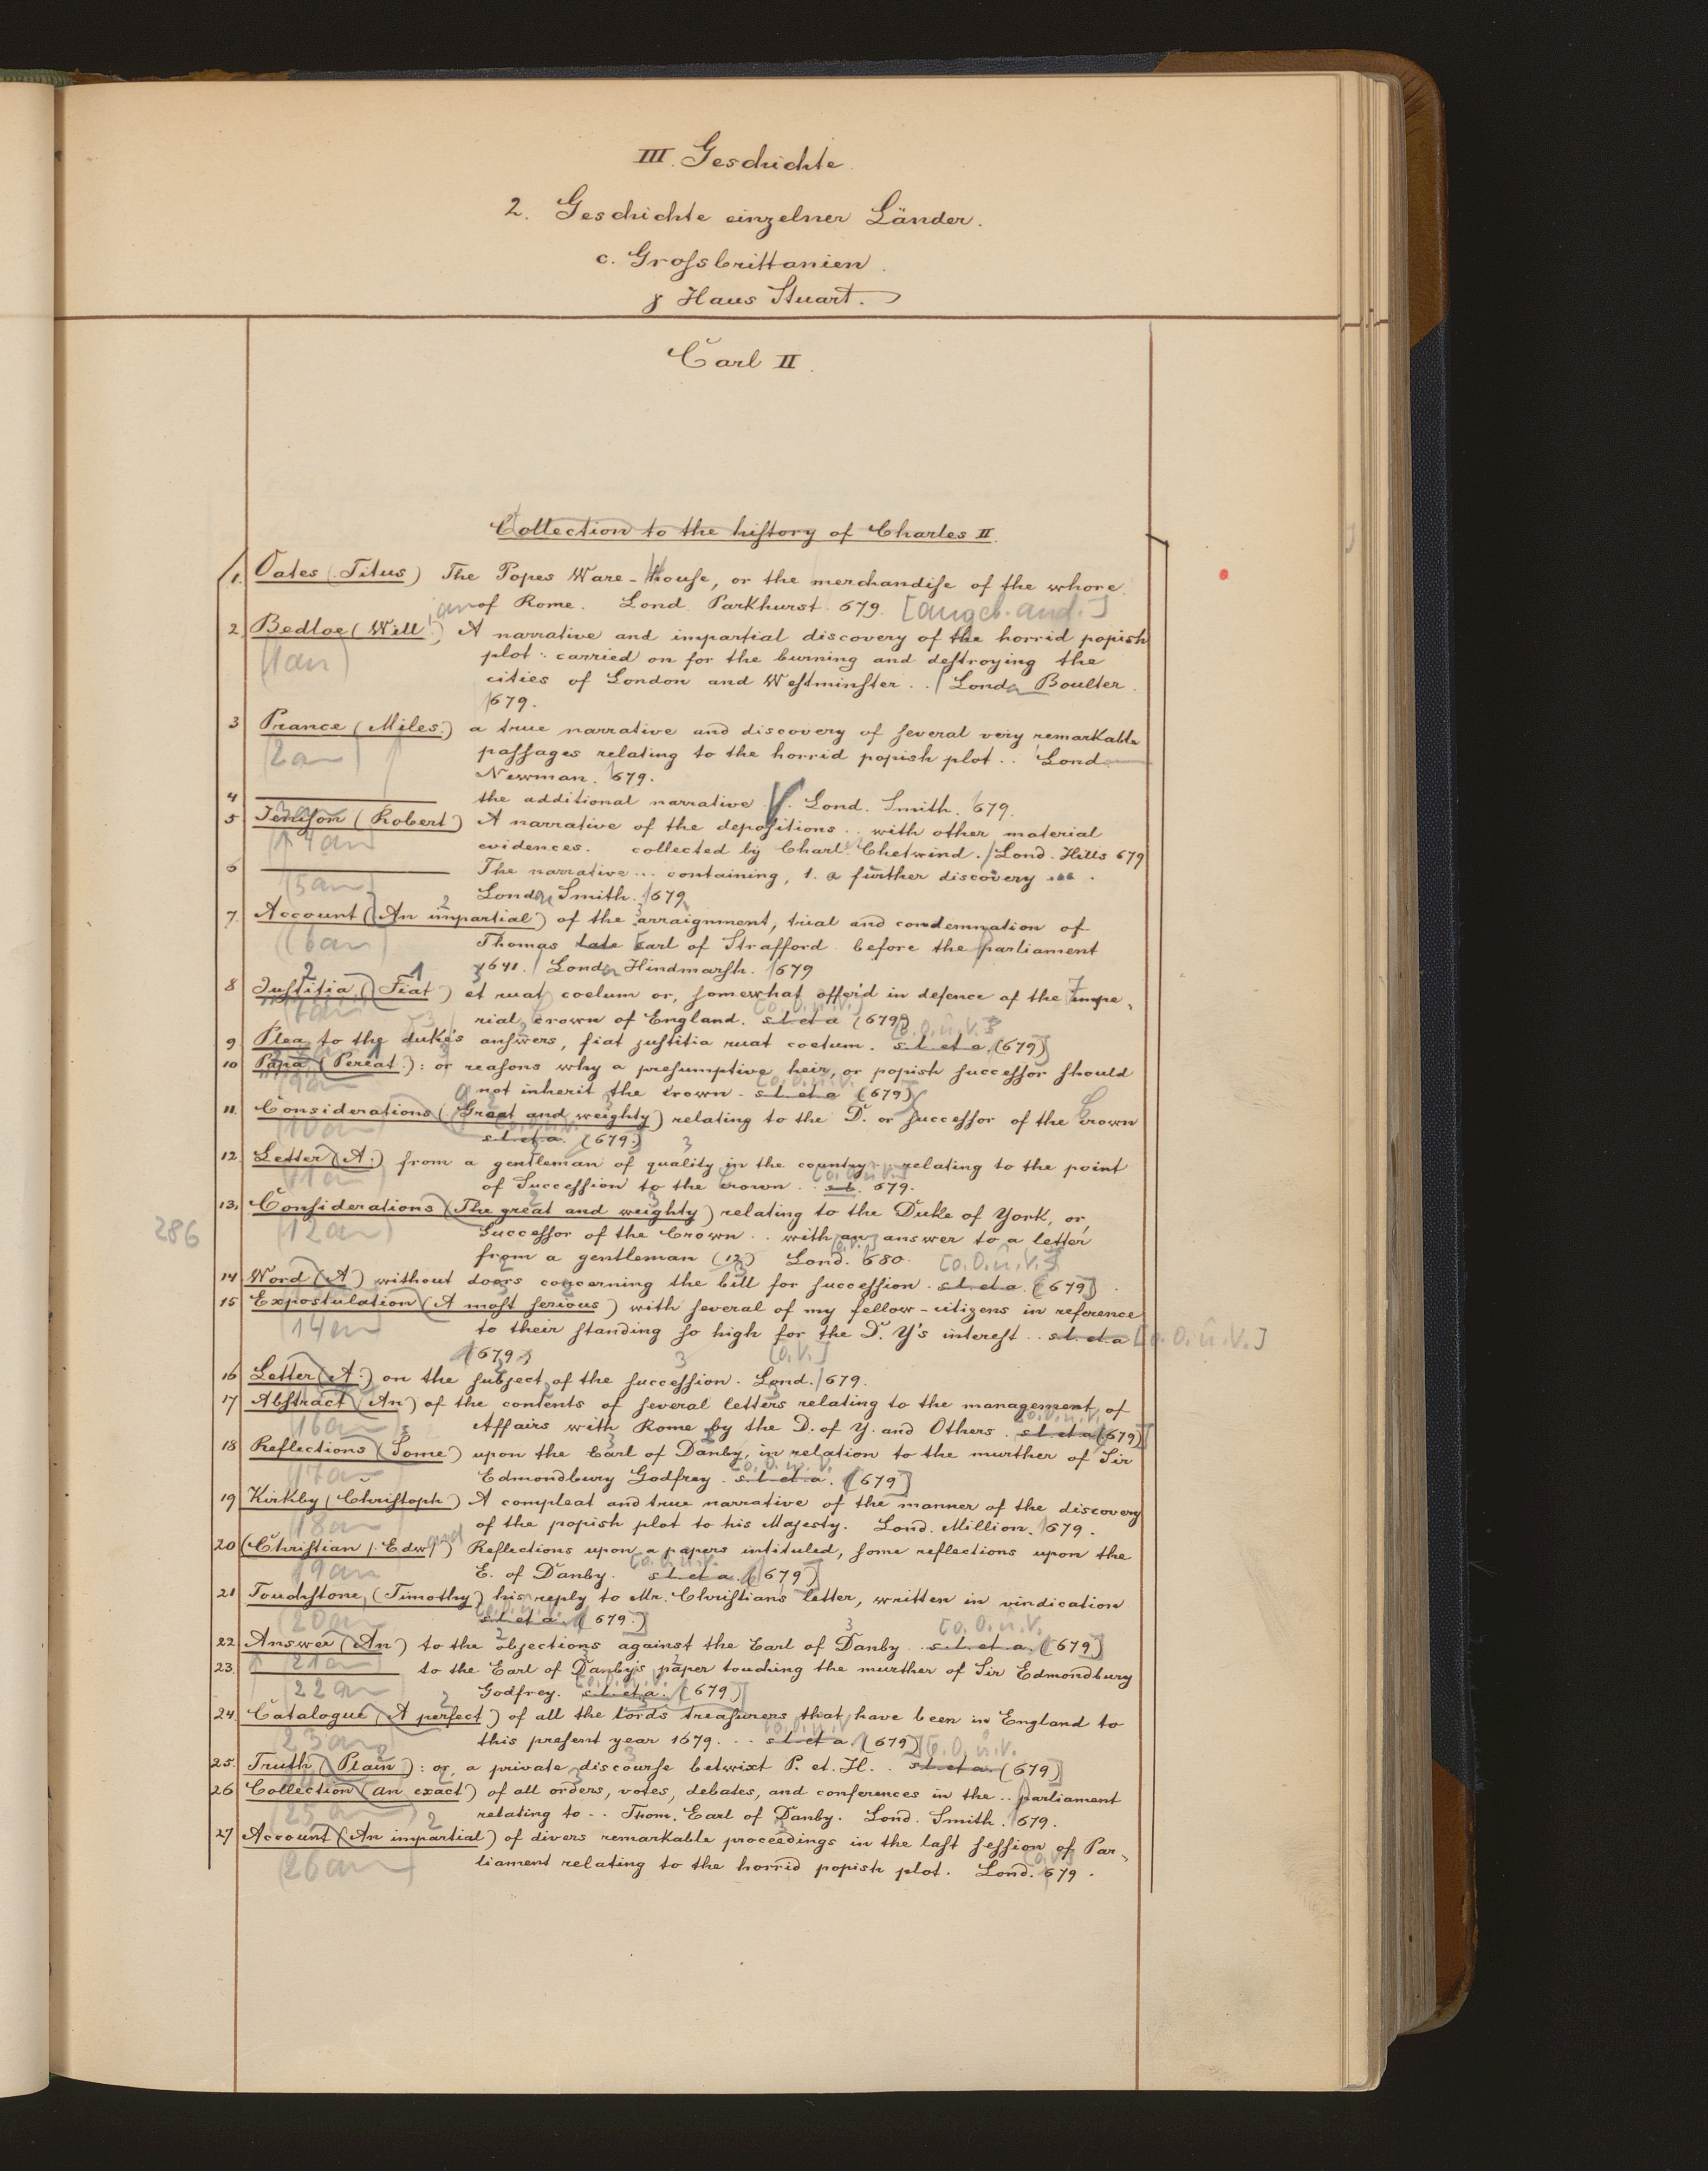 III. Geschichte.
2. Geschichte einzelner Länder.
c. Grossbrittanien.
γ Haus Stuart.
Carl II.
Collection to the history of Charles II.
1. Oates (Titus) The Popes Ware-House, or the merchandise of the whore
of Rome. Lond. Parkhurst. 679. [angeb. and.]
2. Bedloe (Will.) A narrative and impartial discovery of the horrid popish
(1an)
plot: carried on for the burning and destroying the
cities of London and Westminster .. Londn Boulter.
1679.
3 Prance (Miles.) a true narrative and discovery of several very remarkable
(2an)
passages relating to the horrid popish plot .. Lond.
Newman. 1679.
4 the additional narrative. Lond. Smith. 1679.
3an
5 Jenison (Robert) A narrative of the depositions .. with other material
(4an)
evidences. collected by Charl. Chetwind. Lond. Hills 679
6 The narrative ... containing, 1. a further discovery ...
(5an)
Londn Smith. 1679
7. Account (An impartial) of the arraignment, trial and condemnation of
(6an)
Thomas late Earl of Strafford before the parliament
1641. Londn Hindmarsh. 1679
8 Justitia (Fiat) et ruat coelum or, somewhat offer'd in defence of the impe-
(7an)
rial crown of England. s. l. et a (679) [o. O. u. V.]
9. Plea to the duke's answers, fiat justitia ruat coelum. s. l. et a. (679) [o. O. u. V.]
10 Papa (Pereat.): or reasons why a presumptive heir, or popish successor should
(9an)
not inherit the crown. s. l. et a (679) [o. O. u. V.]
11. Considerations (Great and weighty) relating to the D. or successor of the Crown
(10an)
s. l. et a. (679.)
12. Letter (A.) from a gentleman of quality in the country .. relating to the point
(11an)
of Succession to the crown .. s. l. 679. [o. O. u. V.]
13. Considerations (The great and weighty) relating to the Duke of York, or,
286
(12an)
Successor of the Crown .. with an answer to a letter
from a gentleman (12) Lond. 680.
14 Word (A) without doors concerning the bill for succession. s. l. et a. (679) [o. O. u. V.]
15 Expostulation (A most serious) with several of my fellow-citizens in reference
(14an)
to their standing so high for the D. Y's interest .. s. l. et a [o. O. u. V.]
(679.)
16 Letter (A.) on the subject of the succession. Lond. 1679. [o. V.]
17 Abstract (An) of the contents of several letters relating to the management of
(16an)
Affairs with Rome by the D. of Y. and Others. s. l. et a (679) [o. O. u. V.]
18 Reflections (Some) upon the Earl of Danby, in relation to the murther of Sir
(17an)
Edmondbury Godfrey. s. l. et a. (679) [o. O. u. V.]
19 Kirkby (Christoph) A compleat and true narrative of the manner of the discovery
(18an)
of the popish plot to his Majesty. Lond. Million. 1679.
20 (Christian, Edward) Reflections upon a papers intituled, some reflections upon the
(19an)
E. of Danby. s. l. et a. (679) [o. O. u. V.]
21 Touchstone, (Timothy) his reply to Mr. Christians letter, written in vindication
(20an)
s. l. et a. (679.) [o. O. u. V.]
22. Answer (An) to the objections against the Earl of Danby .. s. l. et a. (679) [o. O. u. V.]
(21an)
23. to the Earl of Danby's paper touching the murther of Sir Edmondbury
(22an)
Godfrey. s. l. et a. (679) [o. O. u. V.]
24. Catalogue (A perfect) of all the lords treasurers that have been in England to
(23an)
this present year 1679. .. s. l. et a. (679) [o. O. u. V.]
25. Truth (Plain): or, a private discourse betwixt P. et. H. . s. l. et a. (679) [o. O. u. V.]
26 Collection (an exact) of all orders, votes, debates, and conferences in the .. parliament
(25an)
relating to .. Thom. Earl of Danby. Lond. Smith. 1679.
27 Account (An impartial) of divers remarkable proceedings in the last session of Par-
(26an)
liament relating to the horrid popish plot. Lond. 679. [o. V.]